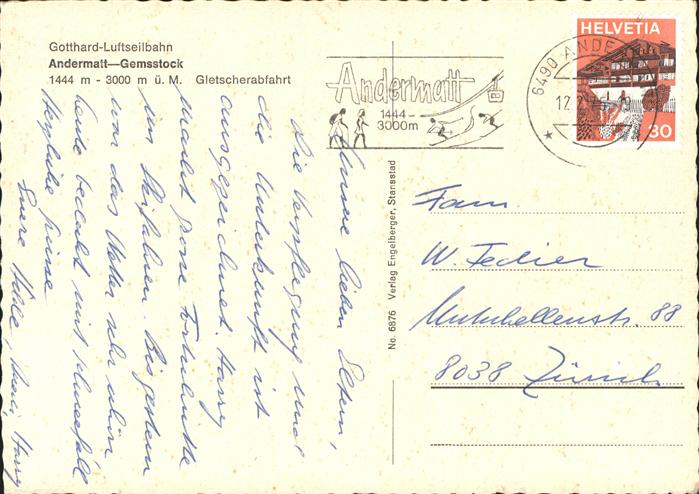 Gotthard-Luftseilbahn
Andermatt—Gemsstock
1444 m - 3000 m ü. M. Gletscherabfahrt
Andermatt
1444 -
3000 m
6490 ANDE
HELVETIA
30
No. 6876 Verlag Engelberger, Stansstad
lieben Eltern,
Die Verpflegung und
die Unterkunft ist
ausgezeichnet. Harry
macht grosse Fortschritte
im Skifahren. Bis gestern
war das Wetter sehr schön
heute bedeckt mit Schneefall
Herzliche Grüsse
Euere Harry
Fam.
W. Fedier
Mutschellenstr. 88
8038 Zürich